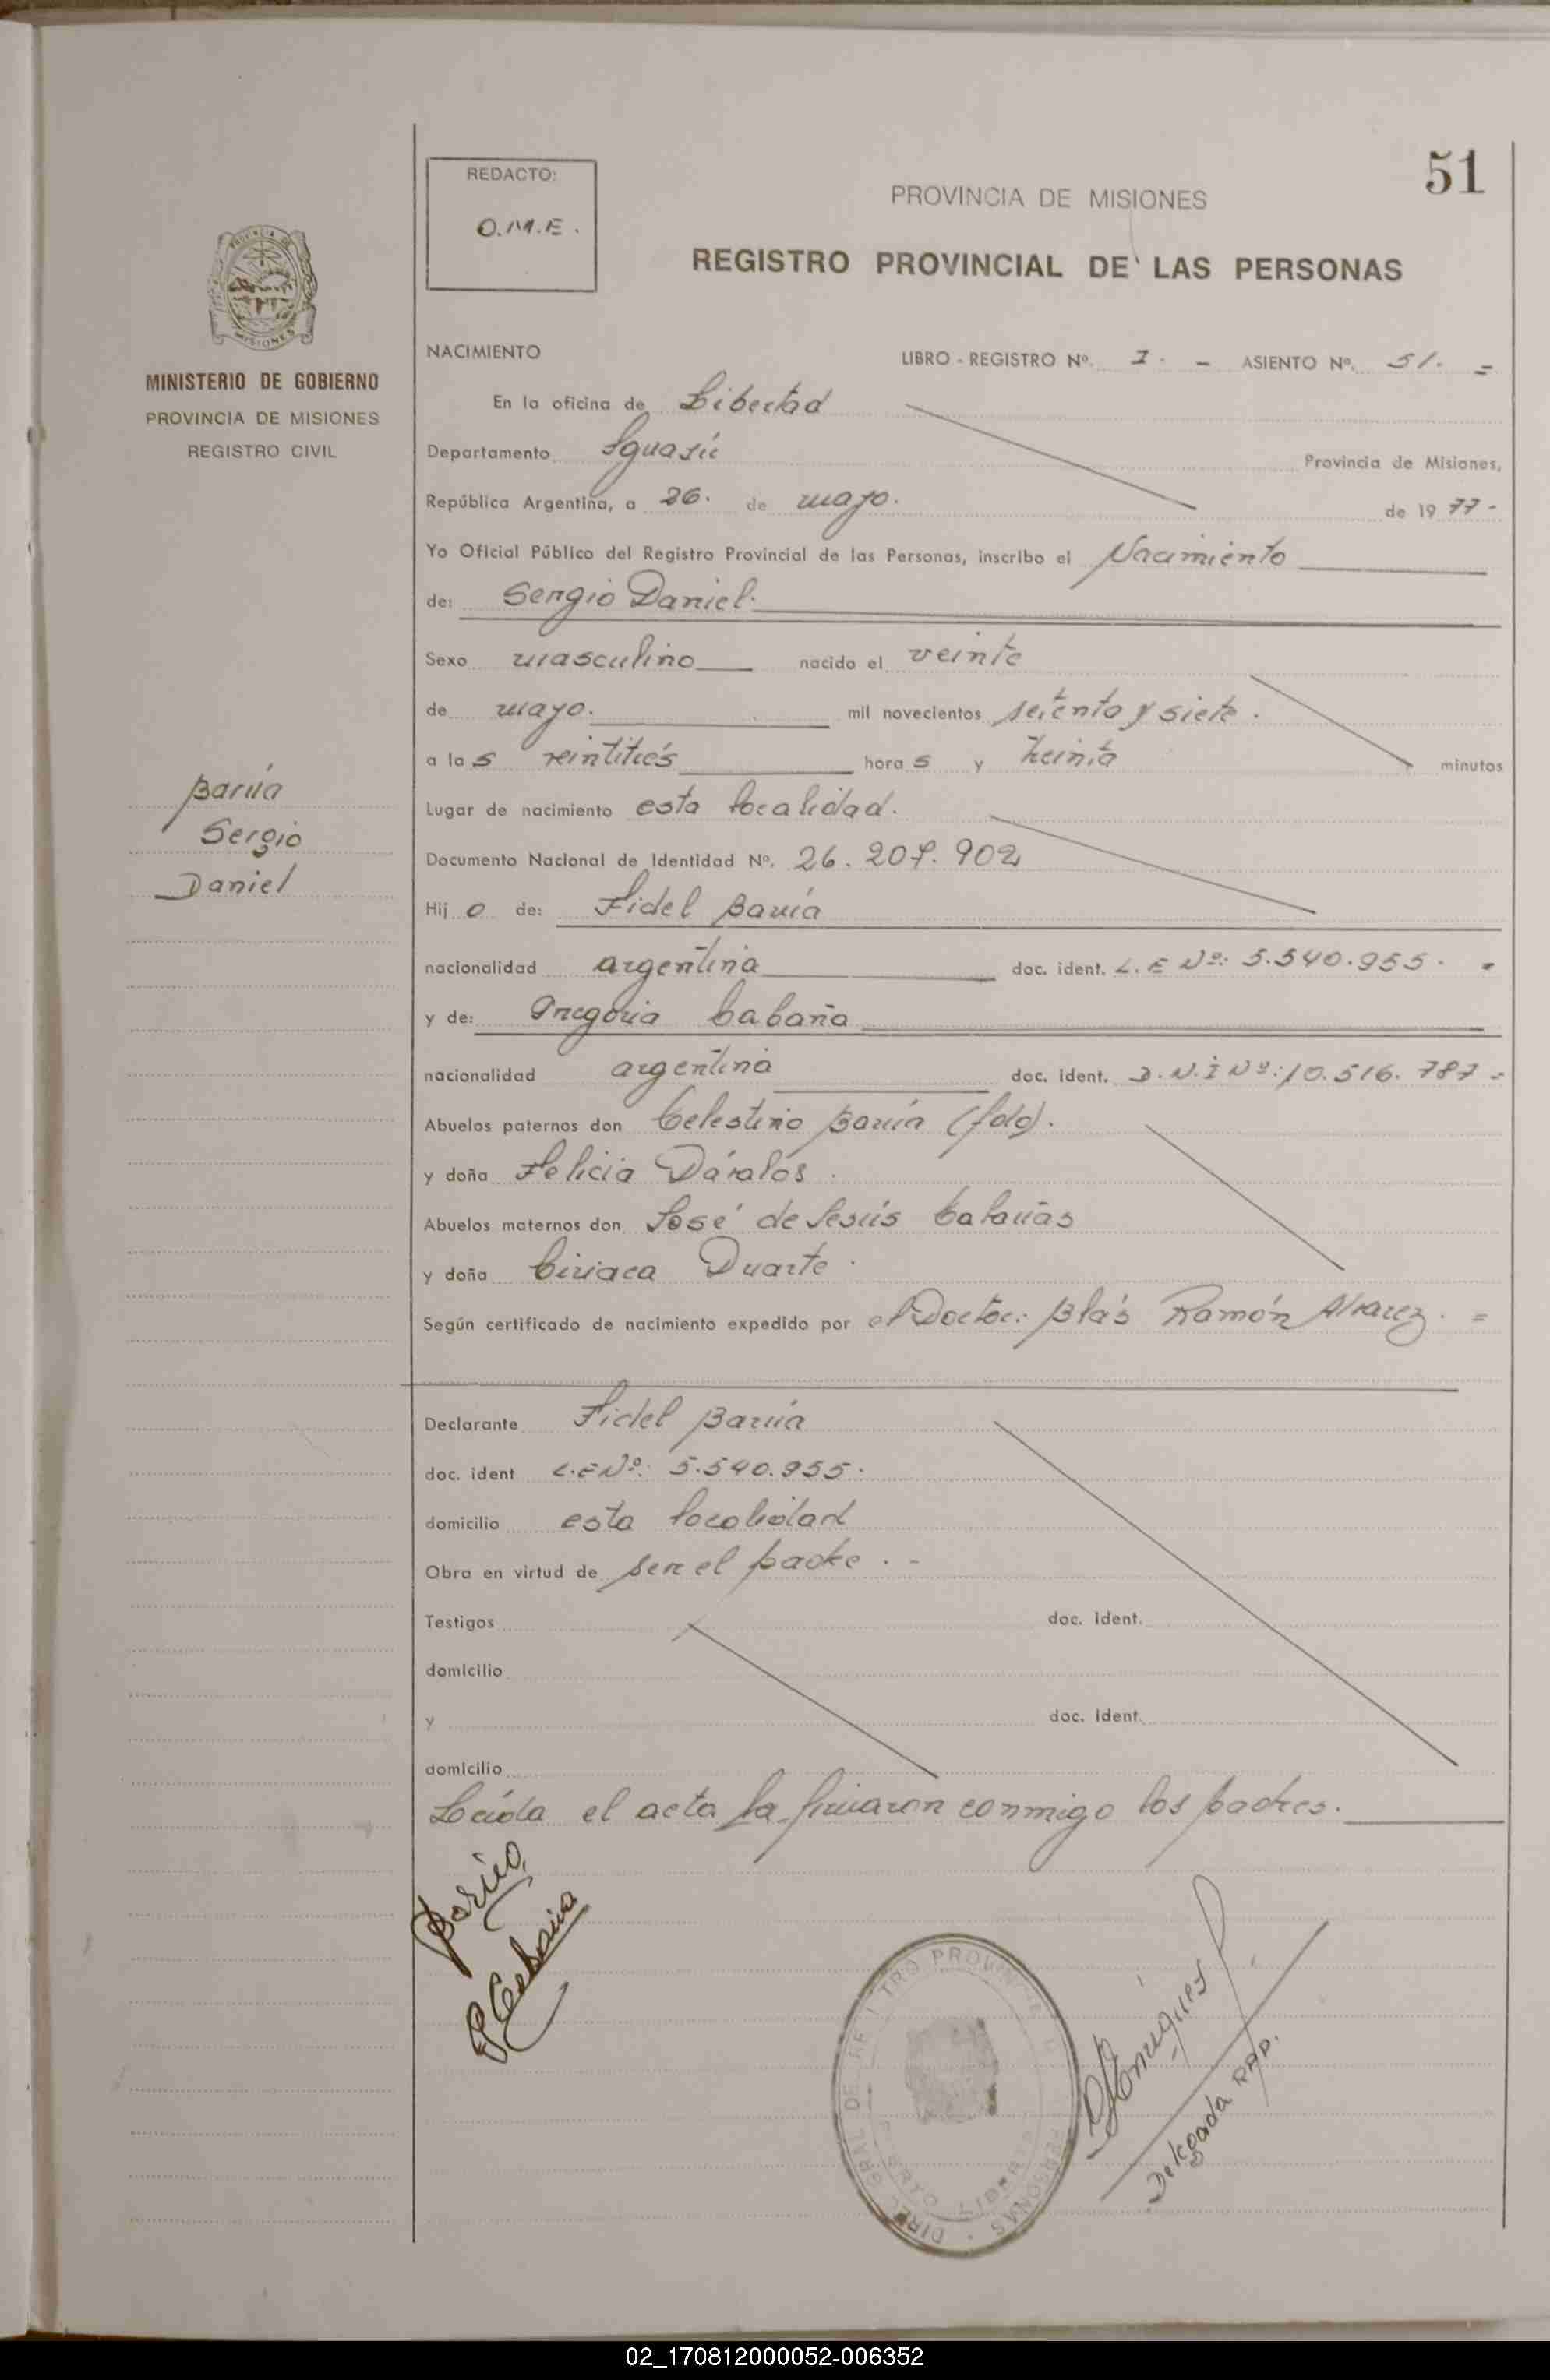 51
REDACTO:
O.M.E.
PROVINCIA DE MISIONES
REGISTRO PROVINCIAL DE LAS PERSONAS
MISIONES
MINISTERIO DE GOBIERNO
PROVINCIA DE MISIONES
REGISTRO CIVIL
NACIMIENTO
LIBRO - REGISTRO Nº. I. - ASIENTO Nº. 51. =
En la oficina de Libertad
Departamento Iguazú Provincia de Misiones,
República Argentina, a 26. de mayo. de 19 77 -
Yo Oficial Público del Registro Provincial de las Personas, inscribo el Nacimiento
de: Sergio Daniel.
Sexo masculino nacido el veinte
de mayo. mil novecientos setenta y siete.
a las veintitrés horas y treinta minutos
Lugar de nacimiento esta localidad.
Documento Nacional de Identidad Nº. 26.207.902
Hijo de: Fidel Barúa
nacionalidad argentina doc. ident. L.E Nº: 5.540.955. -
y de: Gregoria Cabaña
nacionalidad argentina doc. ident. D.N.I Nº: 10.516.787 =
Abuelos paternos don Celestino Barúa (fdo).
y doña Felicia Dávalos.
Abuelos maternos don José de Jesús Cabañas
y doña Ciriaca Duarte.
Según certificado de nacimiento expedido por el Doctor: Blás Ramón Alvarez. =
Barúa
Sergio
Daniel
Declarante Fidel Barúa
doc. ident L.E Nº: 5.540.955.
domicilio esta localidad
Obra en virtud de ser el padre. -
Testigos doc. ident.
domicilio
y doc. ident.
domicilio
Leída el acta la firmaron conmigo los padres.
Barúa
Delegada R.P.P.
02_170812000052-006352